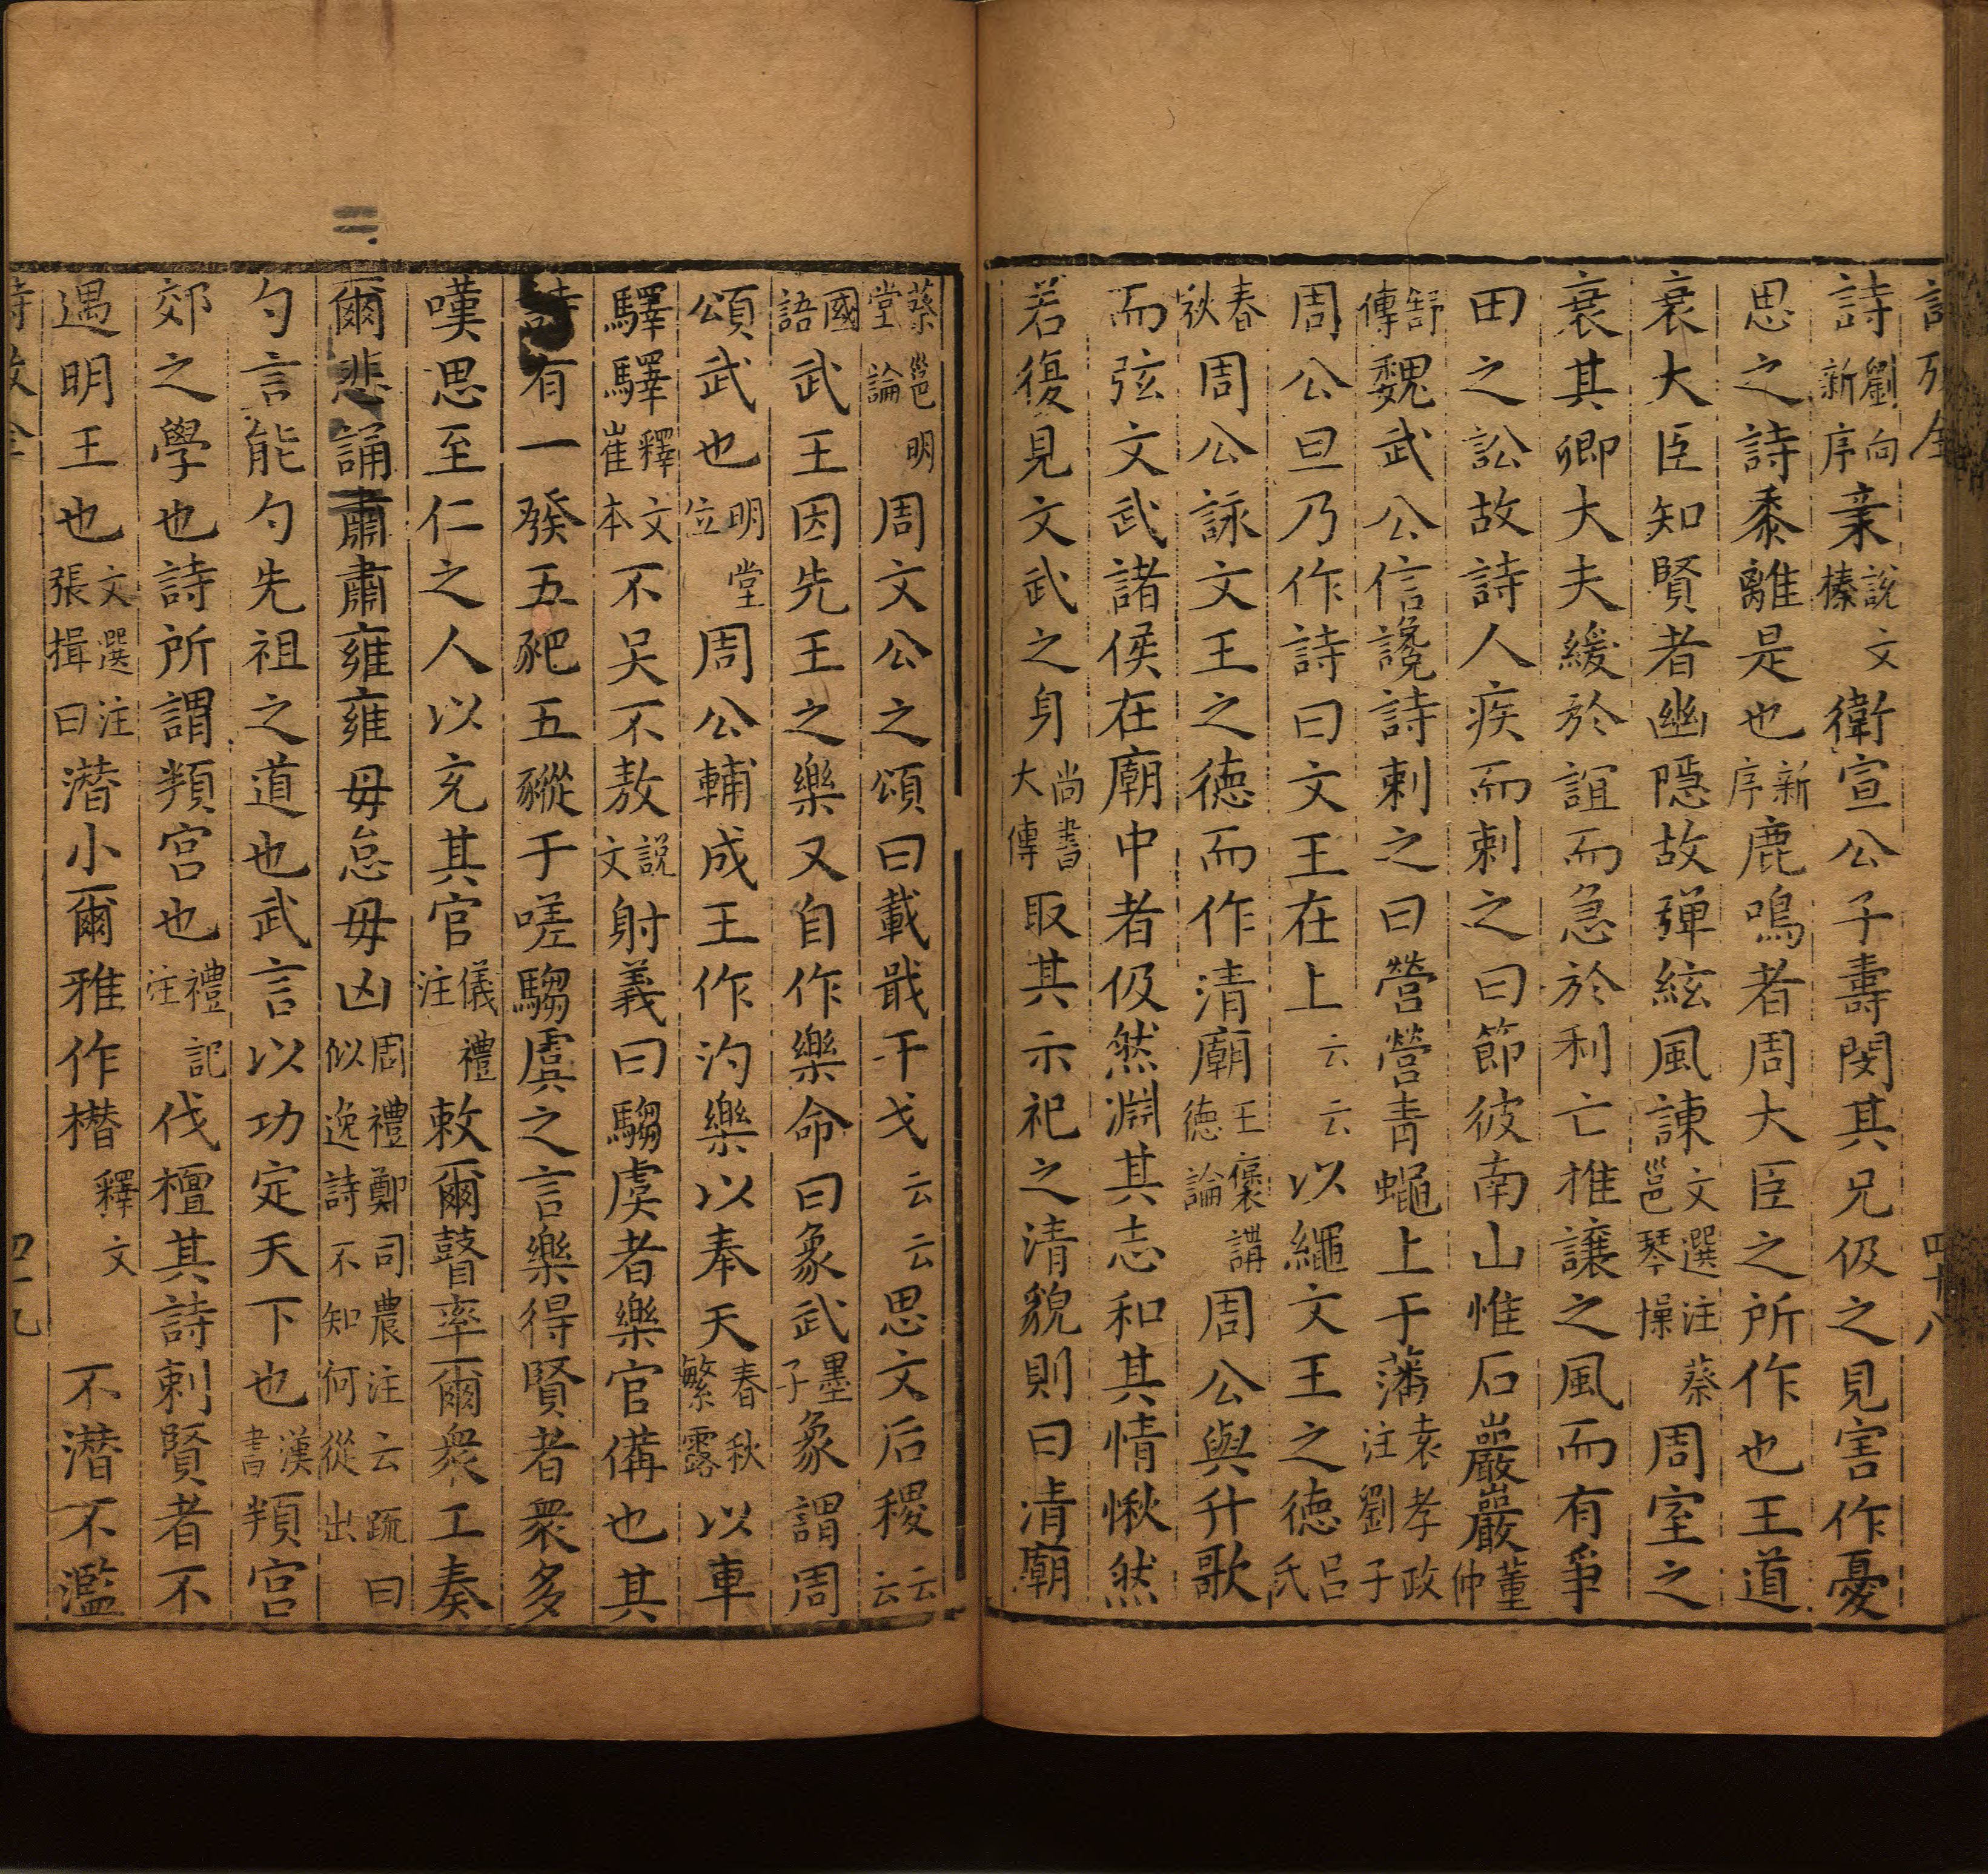 詩劉向新序亲說文榛衛宣公子壽閔其兄伋之見害作憂
思之詩黍離是也新序鹿鳴者周大臣之所作也王道
衰大臣知賢者幽隱故彈絃風諫文選注蔡邕琴操周室之
衰其卿大夫緩於誼而急於利亡推讓之風而有爭
田之訟故詩人疾而刺之曰節彼南山惟石巖巖董仲
舒傳魏武公信讒詩刺之曰營營青蠅上于藩袁孝政注劉子
周公旦乃作詩曰文王在上云云以繩文王之德呂氏
春秋周公詠文王之德而作清廟王褒講德論周公與升歌
而弦文武諸侯在廟中者伋然淵其志和其情愀然
若復見文武之身尚書大傳取其示祀之清貌則曰清廟
蔡邕明堂論周文公之頌曰載戢干戈云云思文后稷云云
國語武王因先王之樂又自作樂命曰象武墨子象謂周
頌武也明堂位周公輔成王作汋樂以奉天春秋繁露以車
驛驛釋文崔本不吴不敖說文射義曰騶虞者樂官備也其
詩有一發五豝五豵于嗟騶虞之言樂得賢者衆多
嘆思至仁之人以充其官儀禮注敕爾瞽率爾衆工奏
爾悲誦肅肅雍雍毋怠毋凶周禮鄭司農注云疏曰似逸詩不知何從出
勺言能勺先祖之道也武言以功定天下也漢書頖宮
郊之學也詩所謂頖宮也禮記注伐檀其詩刺賢者不
遇明王也文選注張揖曰潛小爾雅作橬釋文不潛不濫